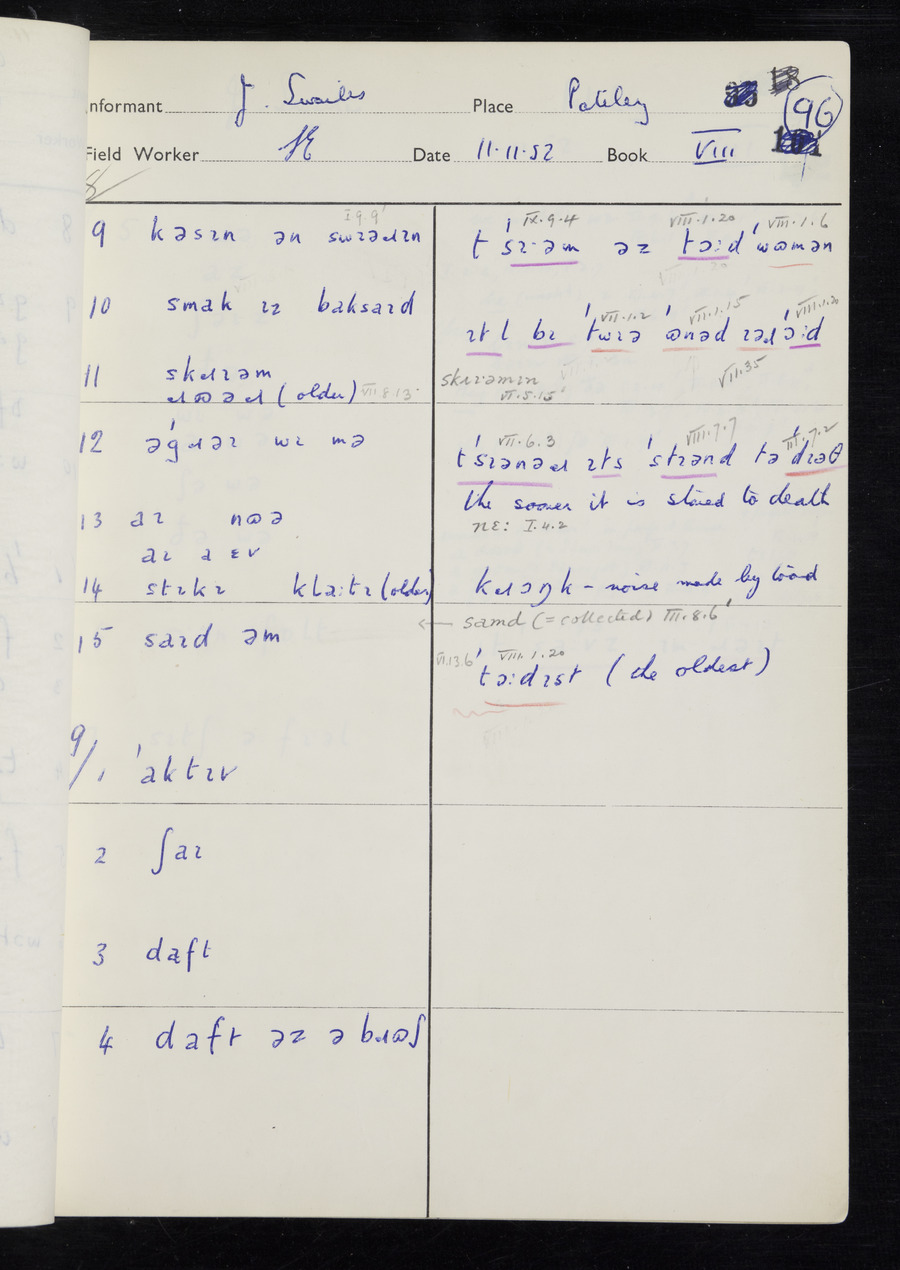 Informant J. Swailes Place Pateley
96
Field Worker SE Date 11.11.52 Book VIII
8/
I 9.9
9 kəsɪn ən swɪəɹɪn
IX.9.4 VIII.1.20 VIII.1.6
t ˈsɪ·əm əz tɔ:d ˈwɷmən
10 smak ɪz baksaɪd
VII.1.2 VII.1.15 VIII.1.20
ɪtl bɪ ˈtwɪə ˈɷnəd ɪəɹ ˈɔ:d
VII.35
11 skɹɪəm
ɹɷəɹ (older) VII.8.13
skɹɪəmɪn
VI.5.15
12 əˈgɹɪəɪ wɪ mə
VII.6.3 VIII.7.7 III.7.2
tˈsɪənəɹ ɪts ˈstɪənd tə ˈdɪəθ
the sooner it is stoned to death
13 aɪ nɷə
nɛ: I.4.2
aɪ a ɛv
14 stɪkɪ klɑ:tɪ (older)
kɹɔŋk – noise made by toad
← samd (= collected) III.8.6
15 saɪd əm
VI.13.6 VIII.1.20
ˈtɔ:dɪst (the oldest)
9/1 ˈaktɪv
2 ʃaɪ
3 daft
4 daft əz ə bɹɷʃ